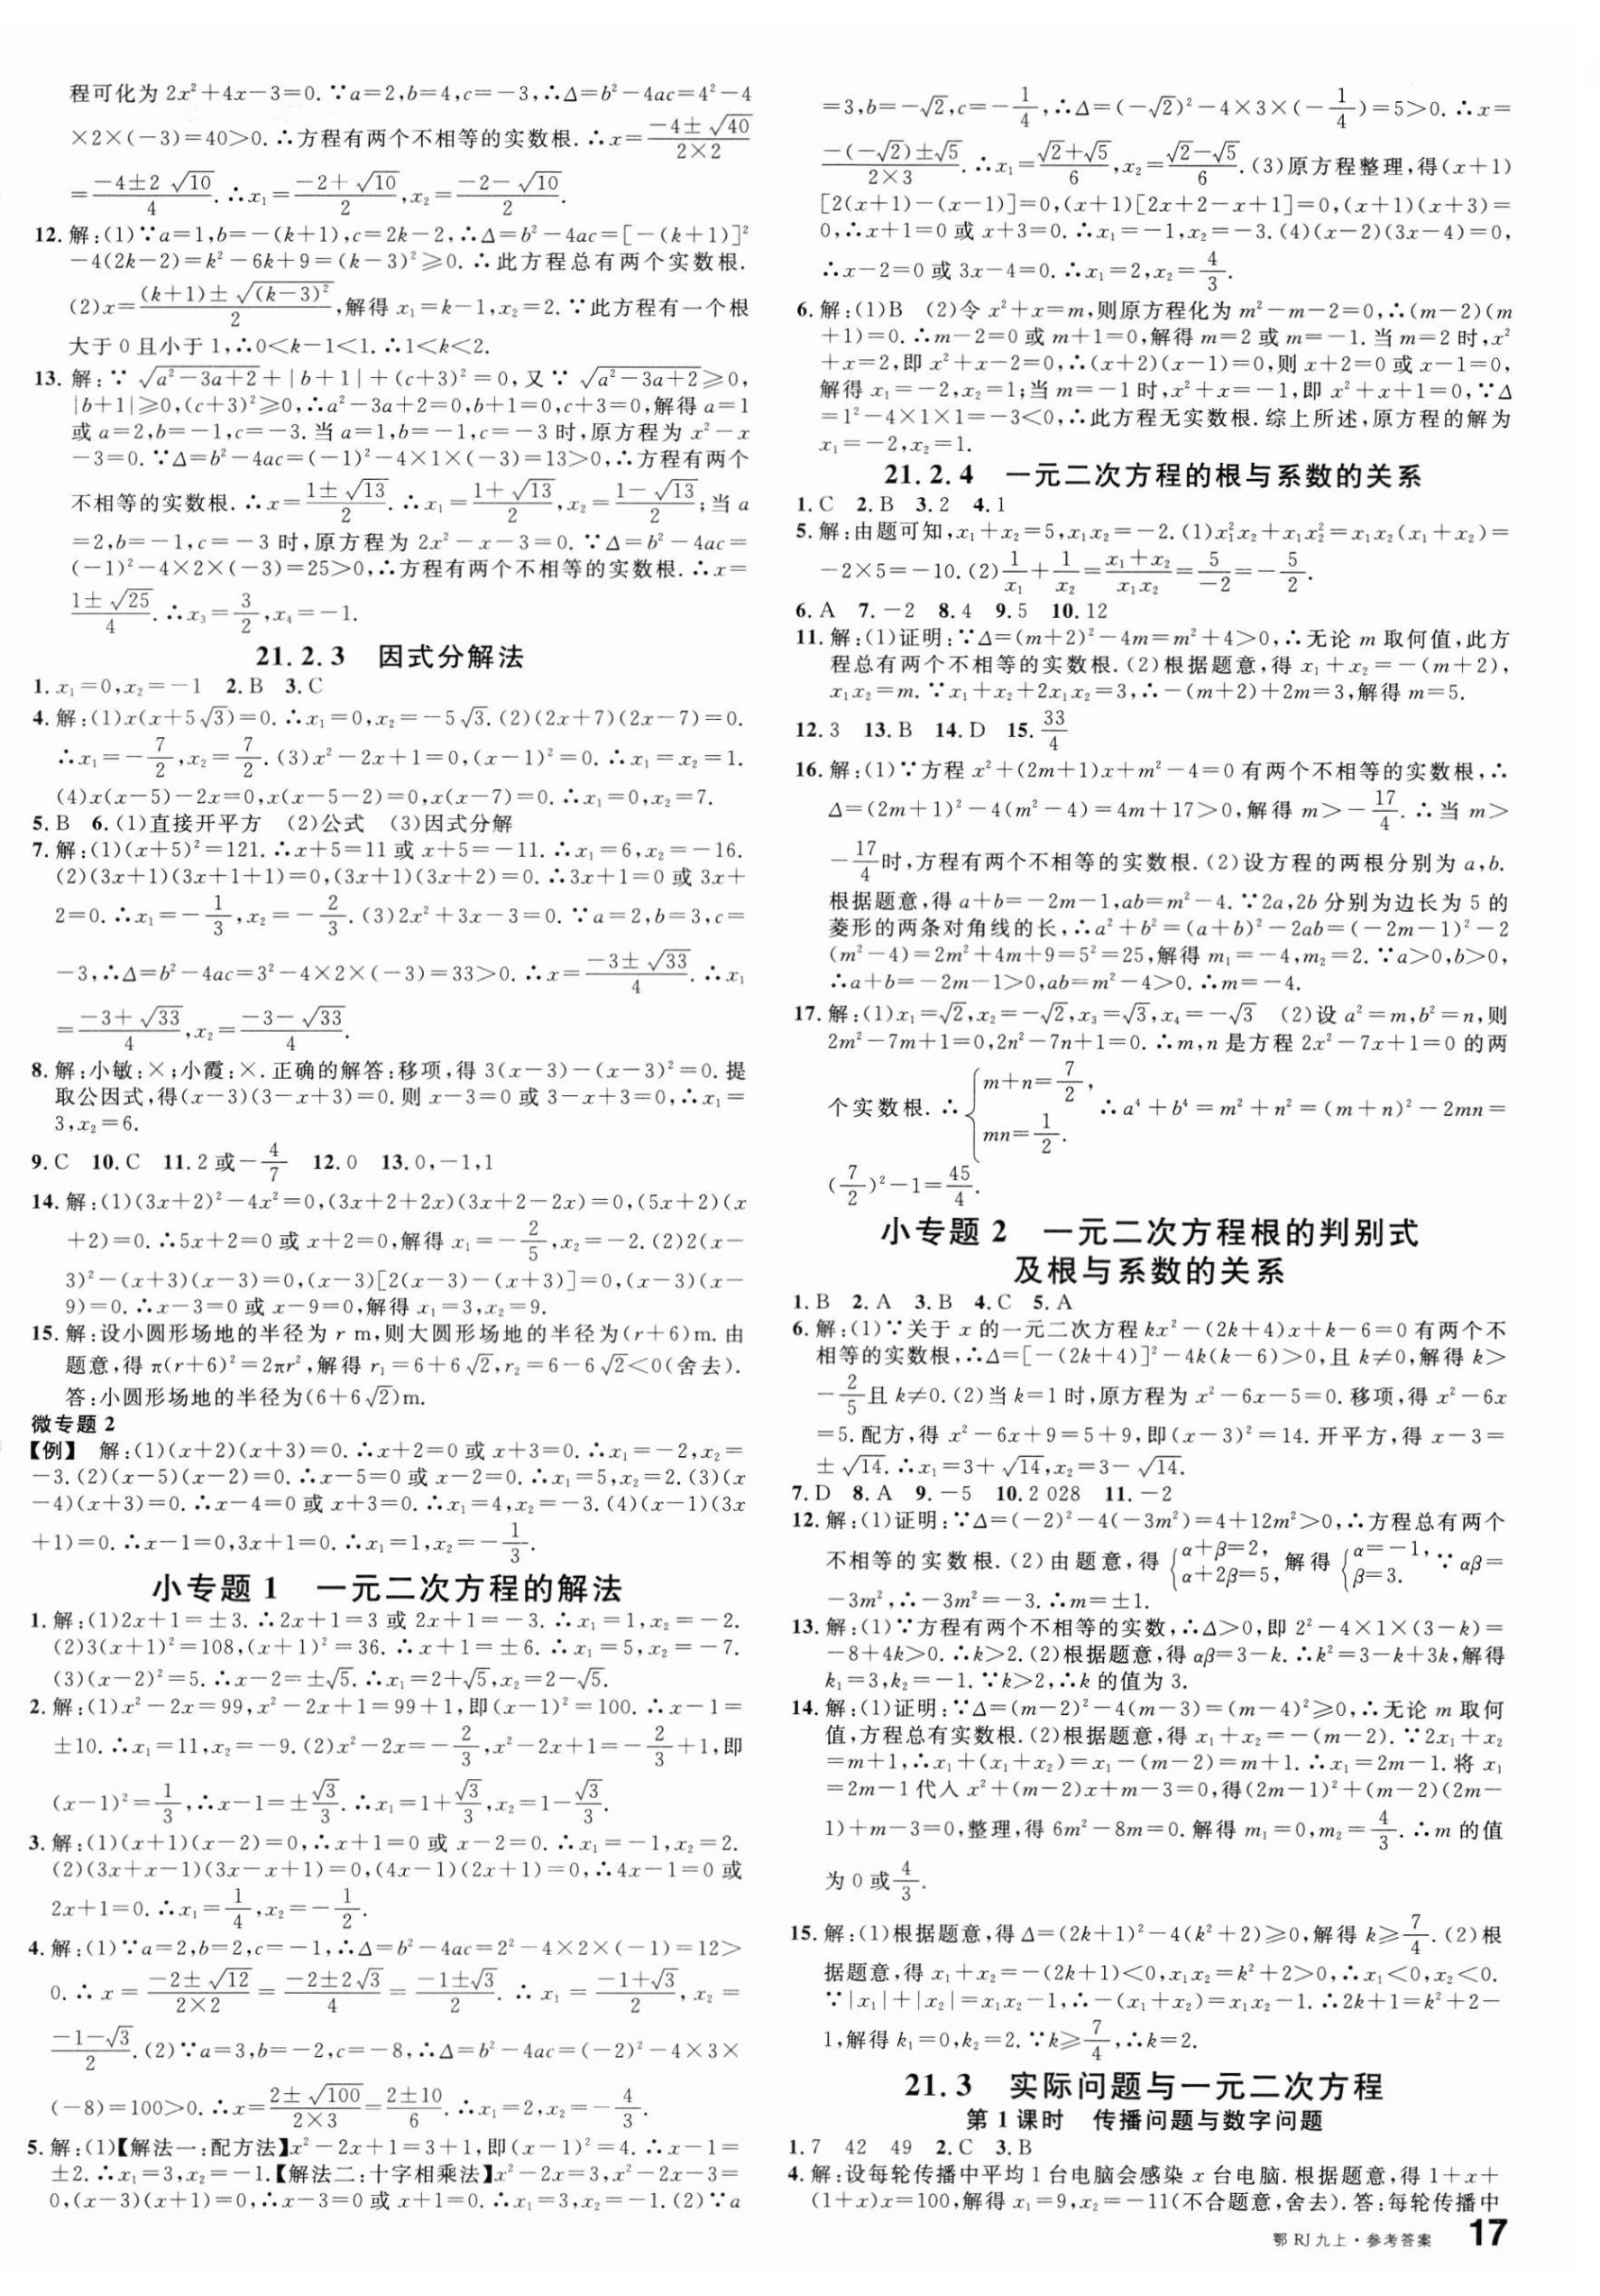 程可化为 2x²+4x-3=0.∵a=2,b=4,c=-3,∴Δ=b²-4ac=4²-4
×2×(-3)=40>0.∴方程有两个不相等的实数根.∴x=(-4±√40)/(2×2)
=(-4±2√10)/4.∴x₁=(-2+√10)/2,x₂=(-2-√10)/2.
12.解:(1)∵a=1,b=-(k+1),c=2k-2,∴Δ=b²-4ac=[-(k+1)]²
-4(2k-2)=k²-6k+9=(k-3)²≥0.∴此方程总有两个实数根.
(2)x=((k+1)±√(k-3)²)/2,解得 x₁=k-1,x₂=2.∵此方程有一个根
大于 0 且小于 1,∴0<k-1<1.∴1<k<2.
13.解:∵√(a²-3a+2)+|b+1|+(c+3)²=0,又∵√(a²-3a+2)≥0,
|b+1|≥0,(c+3)²≥0,∴a²-3a+2=0,b+1=0,c+3=0,解得 a=1
或 a=2,b=-1,c=-3.当 a=1,b=-1,c=-3 时,原方程为 x²-x
-3=0.∵Δ=b²-4ac=(-1)²-4×1×(-3)=13>0,∴方程有两个
不相等的实数根.∴x=(1±√13)/2.∴x₁=(1+√13)/2,x₂=(1-√13)/2;当 a
=2,b=-1,c=-3 时,原方程为 2x²-x-3=0.∵Δ=b²-4ac=
(-1)²-4×2×(-3)=25>0,∴方程有两个不相等的实数根.∴x=
(1±√25)/4.∴x₃=3/2,x₄=-1.
21.2.3 因式分解法
1.x₁=0,x₂=-1 2.B 3.C
4.解:(1)x(x+5√3)=0.∴x₁=0,x₂=-5√3.(2)(2x+7)(2x-7)=0.
∴x₁=-7/2,x₂=7/2.(3)x²-2x+1=0,(x-1)²=0.∴x₁=x₂=1.
(4)x(x-5)-2x=0,x(x-5-2)=0,x(x-7)=0.∴x₁=0,x₂=7.
5.B 6.(1)直接开平方 (2)公式 (3)因式分解
7.解:(1)(x+5)²=121.∴x+5=11 或 x+5=-11.∴x₁=6,x₂=-16.
(2)(3x+1)(3x+1+1)=0,(3x+1)(3x+2)=0.∴3x+1=0 或 3x+
2=0.∴x₁=-1/3,x₂=-2/3.(3)2x²+3x-3=0.∵a=2,b=3,c=
-3,∴Δ=b²-4ac=3²-4×2×(-3)=33>0.∴x=(-3±√33)/4.∴x₁
=(-3+√33)/4,x₂=(-3-√33)/4.
8.解:小敏:×;小霞:×.正确的解答:移项,得 3(x-3)-(x-3)²=0.提
取公因式,得(x-3)(3-x+3)=0.则 x-3=0 或 3-x+3=0,∴x₁=
3,x₂=6.
9.C 10.C 11.2 或-4/7 12.0 13.0,-1,1
14.解:(1)(3x+2)²-4x²=0,(3x+2+2x)(3x+2-2x)=0,(5x+2)(x
+2)=0.∴5x+2=0 或 x+2=0,解得 x₁=-2/5,x₂=-2.(2)2(x-
3)²-(x+3)(x-3)=0,(x-3)[2(x-3)-(x+3)]=0,(x-3)(x-
9)=0.∴x-3=0 或 x-9=0,解得 x₁=3,x₂=9.
15.解:设小圆形场地的半径为 r m,则大圆形场地的半径为(r+6)m.由
题意,得 π(r+6)²=2πr²,解得 r₁=6+6√2,r₂=6-6√2<0(舍去).
答:小圆形场地的半径为(6+6√2)m.
微专题 2
【例】 解:(1)(x+2)(x+3)=0.∴x+2=0 或 x+3=0.∴x₁=-2,x₂=
-3.(2)(x-5)(x-2)=0.∴x-5=0 或 x-2=0.∴x₁=5,x₂=2.(3)(x
-4)(x+3)=0.∴x-4=0 或 x+3=0.∴x₁=4,x₂=-3.(4)(x-1)(3x
+1)=0.∴x-1=0,3x+1=0.∴x₁=1,x₂=-1/3.
小专题 1 一元二次方程的解法
1.解:(1)2x+1=±3.∴2x+1=3 或 2x+1=-3.∴x₁=1,x₂=-2.
(2)3(x+1)²=108,(x+1)²=36.∴x+1=±6.∴x₁=5,x₂=-7.
(3)(x-2)²=5.∴x-2=±√5.∴x₁=2+√5,x₂=2-√5.
2.解:(1)x²-2x=99,x²-2x+1=99+1,即(x-1)²=100.∴x-1=
±10.∴x₁=11,x₂=-9.(2)x²-2x=-2/3,x²-2x+1=-2/3+1,即
(x-1)²=1/3,∴x-1=±√3/3.∴x₁=1+√3/3,x₂=1-√3/3.
3.解:(1)(x+1)(x-2)=0,∴x+1=0 或 x-2=0.∴x₁=-1,x₂=2.
(2)(3x+x-1)(3x-x+1)=0,(4x-1)(2x+1)=0,∴4x-1=0 或
2x+1=0.∴x₁=1/4,x₂=-1/2.
4.解:(1)∵a=2,b=2,c=-1,∴Δ=b²-4ac=2²-4×2×(-1)=12>
0.∴x=(-2±√12)/(2×2)=(-2±2√3)/4=(-1±√3)/2.∴x₁=(-1+√3)/2,x₂=
(-1-√3)/2.(2)∵a=3,b=-2,c=-8,∴Δ=b²-4ac=(-2)²-4×3×
(-8)=100>0.∴x=(2±√100)/(2×3)=(2±10)/6.∴x₁=2,x₂=-4/3.
5.解:(1)【解法一:配方法】x²-2x+1=3+1,即(x-1)²=4.∴x-1=
±2.∴x₁=3,x₂=-1.【解法二:十字相乘法】x²-2x=3,x²-2x-3=
0,(x-3)(x+1)=0,∴x-3=0 或 x+1=0.∴x₁=3,x₂=-1.(2)∵a
=3,b=-√2,c=-1/4,∴Δ=(-√2)²-4×3×(-1/4)=5>0.∴x=
(-(-√2)±√5)/(2×3).∴x₁=(√2+√5)/6,x₂=(√2-√5)/6.(3)原方程整理,得(x+1)
[2(x+1)-(x-1)]=0,(x+1)[2x+2-x+1]=0,(x+1)(x+3)=
0,∴x+1=0 或 x+3=0.∴x₁=-1,x₂=-3.(4)(x-2)(3x-4)=0,
∴x-2=0 或 3x-4=0.∴x₁=2,x₂=4/3.
6.解:(1)B (2)令 x²+x=m,则原方程化为 m²-m-2=0,∴(m-2)(m
+1)=0.∴m-2=0 或 m+1=0,解得 m=2 或 m=-1.当 m=2 时,x²
+x=2,即 x²+x-2=0,∴(x+2)(x-1)=0,则 x+2=0 或 x-1=0,
解得 x₁=-2,x₂=1;当 m=-1 时,x²+x=-1,即 x²+x+1=0,∵Δ
=1²-4×1×1=-3<0,∴此方程无实数根.综上所述,原方程的解为
x₁=-2,x₂=1.
21.2.4 一元二次方程的根与系数的关系
1.C 2.B 3.2 4.1
5.解:由题可知,x₁+x₂=5,x₁x₂=-2.(1)x₁²x₂+x₁x₂²=x₁x₂(x₁+x₂)=
-2×5=-10.(2)1/x₁+1/x₂=(x₁+x₂)/(x₁x₂)=5/(-2)=-5/2.
6.A 7.-2 8.4 9.5 10.12
11.解:(1)证明:∵Δ=(m+2)²-4m=m²+4>0,∴无论 m 取何值,此方
程总有两个不相等的实数根.(2)根据题意,得 x₁+x₂=-(m+2),
x₁x₂=m.∵x₁+x₂+2x₁x₂=3,∴-(m+2)+2m=3,解得 m=5.
12.3 13.B 14.D 15.33/4
16.解:(1)∵方程 x²+(2m+1)x+m²-4=0 有两个不相等的实数根,∴
Δ=(2m+1)²-4(m²-4)=4m+17>0,解得 m>-17/4.∴当 m>
-17/4时,方程有两个不相等的实数根.(2)设方程的两根分别为 a,b.
根据题意,得 a+b=-2m-1,ab=m²-4.∵2a,2b 分别为边长为 5 的
菱形的两条对角线的长,∴a²+b²=(a+b)²-2ab=(-2m-1)²-2
(m²-4)=2m²+4m+9=5²=25,解得 m₁=-4,m₂=2.∵a>0,b>0,
∴a+b=-2m-1>0,ab=m²-4>0.∴m=-4.
17.解:(1)x₁=√2,x₂=-√2,x₃=√3,x₄=-√3 (2)设 a²=m,b²=n,则
2m²-7m+1=0,2n²-7n+1=0.∴m,n 是方程 2x²-7x+1=0 的两
个实数根.∴{m+n=7/2, mn=1/2. ∴a⁴+b⁴=m²+n²=(m+n)²-2mn=
(7/2)²-1=45/4.
小专题 2 一元二次方程根的判别式
及根与系数的关系
1.B 2.A 3.B 4.C 5.A
6.解:(1)∵关于 x 的一元二次方程 kx²-(2k+4)x+k-6=0 有两个不
相等的实数根,∴Δ=[-(2k+4)]²-4k(k-6)>0,且 k≠0,解得 k>
-2/5且 k≠0.(2)当 k=1 时,原方程为 x²-6x-5=0.移项,得 x²-6x
=5.配方,得 x²-6x+9=5+9,即(x-3)²=14.开平方,得 x-3=
±√14.∴x₁=3+√14,x₂=3-√14.
7.D 8.A 9.-5 10.2 028 11.-2
12.解:(1)证明:∵Δ=(-2)²-4(-3m²)=4+12m²>0,∴方程总有两个
不相等的实数根.(2)由题意,得{α+β=2, α+2β=5, 解得{α=-1, β=3. ∵αβ=
-3m²,∴-3m²=-3.∴m=±1.
13.解:(1)∵方程有两个不相等的实数,∴Δ>0,即 2²-4×1×(3-k)=
-8+4k>0.∴k>2.(2)根据题意,得 αβ=3-k.∴k²=3-k+3k,解得
k₁=3,k₂=-1.∵k>2,∴k 的值为 3.
14.解:(1)证明:∵Δ=(m-2)²-4(m-3)=(m-4)²≥0,∴无论 m 取何
值,方程总有实数根.(2)根据题意,得 x₁+x₂=-(m-2).∵2x₁+x₂
=m+1,∴x₁+(x₁+x₂)=x₁-(m-2)=m+1.∴x₁=2m-1.将 x₁
=2m-1 代入 x²+(m-2)x+m-3=0,得(2m-1)²+(m-2)(2m-
1)+m-3=0,整理,得 6m²-8m=0.解得 m₁=0,m₂=4/3.∴m 的值
为 0 或4/3.
15.解:(1)根据题意,得 Δ=(2k+1)²-4(k²+2)≥0,解得 k≥7/4.(2)根
据题意,得 x₁+x₂=-(2k+1)<0,x₁x₂=k²+2>0,∴x₁<0,x₂<0.
∵|x₁|+|x₂|=x₁x₂-1,∴-(x₁+x₂)=x₁x₂-1.∴2k+1=k²+2-
1,解得 k₁=0,k₂=2.∵k≥7/4,∴k=2.
21.3 实际问题与一元二次方程
第 1 课时 传播问题与数字问题
1.7 42 49 2.C 3.B
4.解:设每轮传播中平均 1 台电脑会感染 x 台电脑.根据题意,得 1+x+
(1+x)x=100,解得 x₁=9,x₂=-11(不合题意,舍去).答:每轮传播中
鄂 RJ 九上·参考答案 17